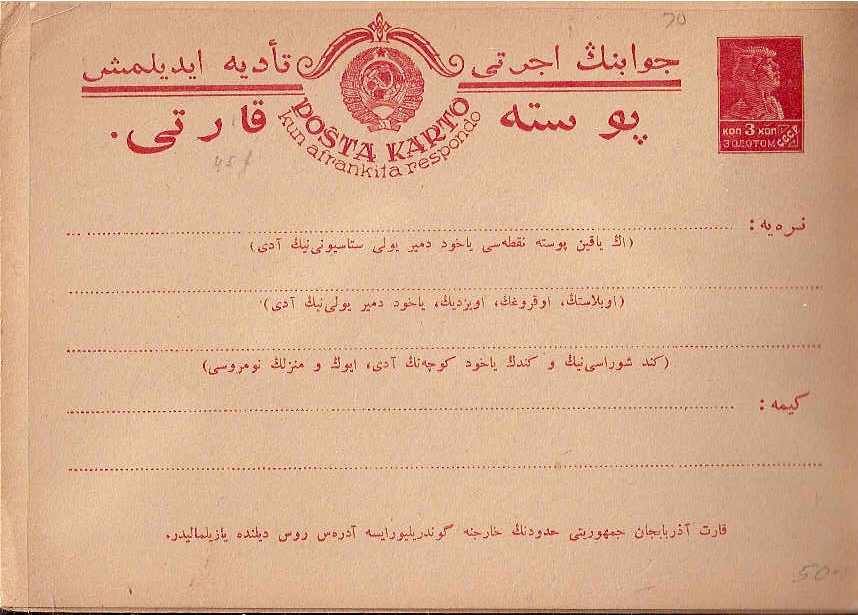 جوابنڭ اجرتی تأدیه ایدیلمش
پوسته قارتی.
POSTA KARTO
kun afrankita respondo
КОП 3 КОП
ЗОЛОТОМ
СССР
نره‌یه :
(اڭ یاقین پوسته نقطه‌سی یاخود دمیر یولی ستاسیونی‌نیڭ آدی)
(اوبلاستڭ، اوقروغڭ، اویزدیڭ، یاخود دمیر یولی‌نیڭ آدی)
(کند شوراسی‌نیڭ و کندڭ یاخود کوچه‌نڭ آدی، ایوڭ و منزلڭ نومروسی)
کیمه :
قارت آذربایجان جمهوریتی حدودنڭ خارجنه گوندریلیورایسه آدره‌س روس دیلنده یازیلمالیدر.
50-